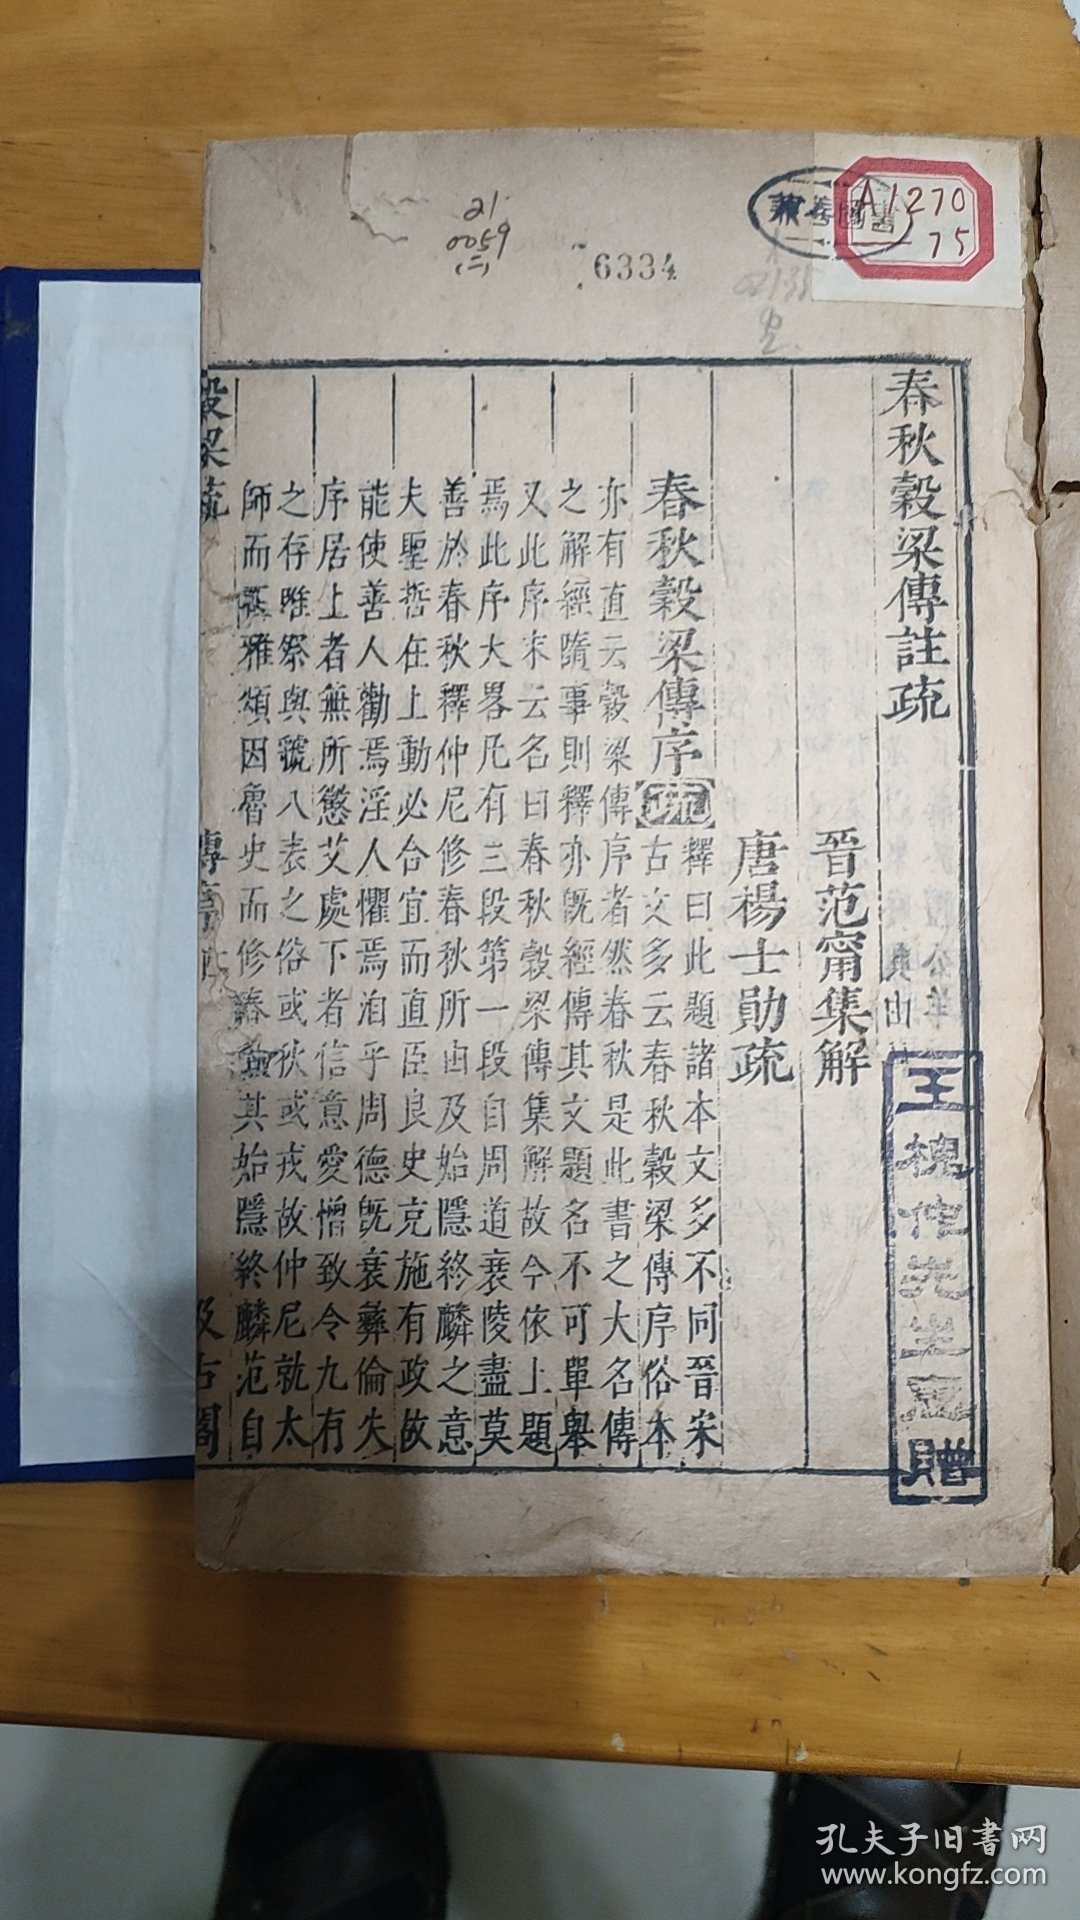 A1270
75
21
0059
(二)
6334
春秋穀梁傳註疏
晉范甯集解
唐楊士勛疏
春秋穀梁傳序疏
釋曰此題諸本文多不同晉宋
古文多云春秋穀梁傳序俗本
亦有直云穀梁傳序者然春秋是此書之大名傳
之解經隨事則釋亦既經傳其文題名不可單舉
又此序末云名曰春秋穀梁傳集解故今依上題
焉此序大畧凡有三段第一段自周道衰陵盡莫
善於春秋釋仲尼修春秋所由及始隱終麟之意
夫聖哲在上動必合宜而直臣良史克施有政故
能使善人勸焉淫人懼焉洎乎周德既衰彝倫失
序居上者無所懲艾處下者信意愛憎致令九有
之存唯祭與號八表之俗或狄或戎故仲尼就太
師而正雅頌因魯史而修春秋其始隱終麟范自
穀梁疏
傳序
汲古閣
王槐作先生
贈
孔夫子旧書网
www.kongfz.com